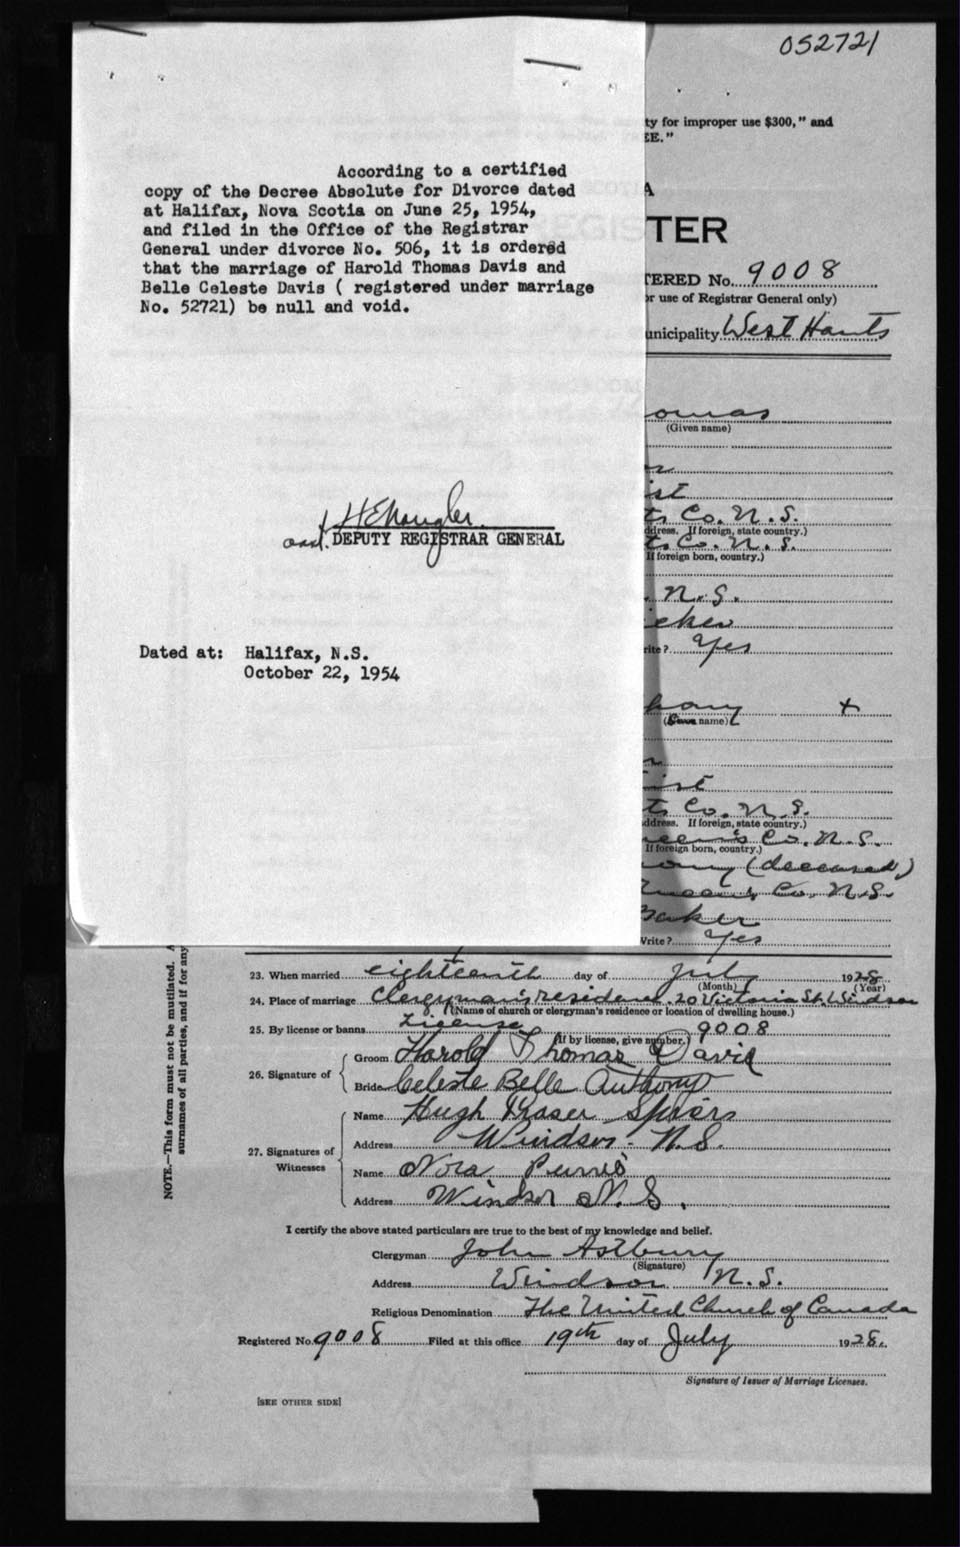 052721
ty for improper use $300," and
EE."
According to a certified
copy of the Decree Absolute for Divorce dated
at Halifax, Nova Scotia on June 25, 1954,
and filed in the Office of the Registrar
General under divorce No. 506, it is ordered
that the marriage of Harold Thomas Davis and
Belle Celeste Davis ( registered under marriage
No. 52721) be null and void.
DEPUTY REGISTRAR GENERAL
Dated at: Halifax, N.S.
October 22, 1954
A
TER
TERED No. 9008
or use of Registrar General only)
unicipality West Hants
omas
(Given name)
ist
ts Co. N.S.
ddress. If foreign, state country.)
ts Co. N.S.
If foreign born, country.)
N.S.
rite? Yes
hony +
name)
ist
ts Co. N.S.
ddress. If foreign, state country.)
ueen's Co. N.S.
If foreign born, country.)
ony (deceased)
Queen's Co. N.S.
Baker
Write? Yes
NOTE.—This form must not be mutilated. A
surnames of all parties, and if for any
23. When married eighteenth day of July 1928
(Month) (Year)
24. Place of marriage Clergyman's residence. 20 Victoria St. Windsor
(Name of church or clergyman's residence or location of dwelling house.)
25. By license or banns License 9008
(If by license, give number.)
26. Signature of
Groom Harold Thomas Davis
Bride Celeste Belle Anthony
27. Signatures of Witnesses
Name Hugh Fraser
Address Windsor N.S.
Name Nora
Address Windsor N.S.
I certify the above stated particulars are true to the best of my knowledge and belief.
Clergyman John Astbury
(Signature)
Address Windsor N.S.
Religious Denomination The United Church of Canada
Registered No. 9008 Filed at this office 19th day of July 1928.
Signature of Issuer of Marriage Licenses.
[SEE OTHER SIDE]